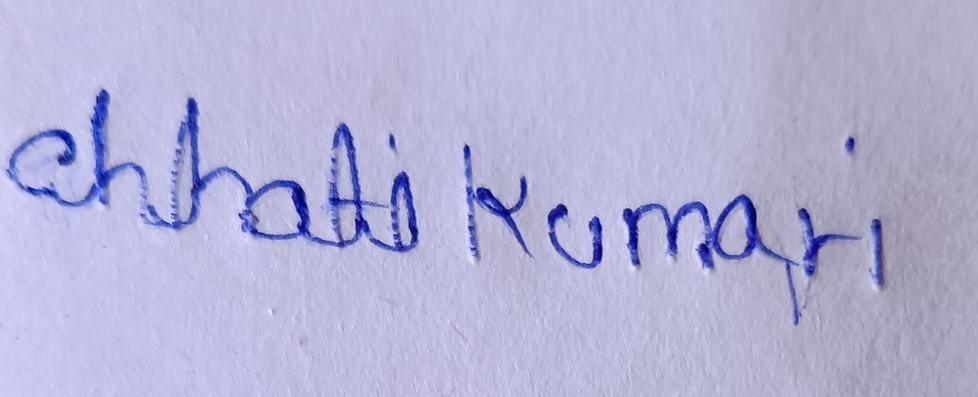 Chhati Kumari